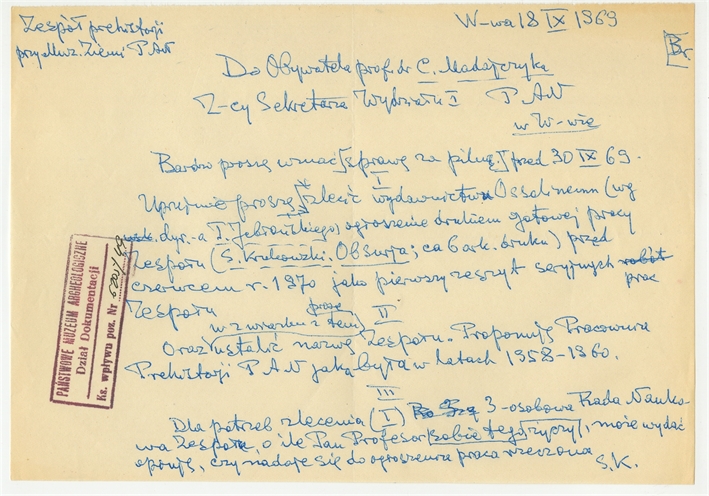 Zespół prehistorji
przy Muz. Ziemi PAN
W-wa 18 IX 1969
Br.
Do Obywatela prof. dr C. Madajczyka
Z-cy Sekretarza Wydziału I PAN
w W-wie
Bardzo proszę uznać sprawę za pilną przed 30 IX 69.
I
Uprzejmie proszę zlecić wydawnictwu Ossolineum (wg
dyr-a I. Jebrońskiego) ogłoszenie drukiem gotowej pracy
Zespołu (S. Krukowski. Obsurja; ca 6 ark. druku) przed
czerwcem r. 1970 jako pierwszy zeszyt seryjnych robót
prac
Zespołu
II
w związku z tem proszę
Oraz ustalić nazwę Zespołu. Proponuję Pracownia
Prehistorji PAN jaką była w latach 1958-1960.
III
Dla potrzeb zlecenia (I) 3-osobowa Rada Nauko-
wa Zespołu, o ile Pan Profesor sobie tego życzy, może wydać
opinję, czy nadaje się do ogłoszenia praca rzeczona
S.K.
PAŃSTWOWE MUZEUM ARCHEOLOGICZNE
Dział Dokumentacji
Ks. wpływu poz. Nr